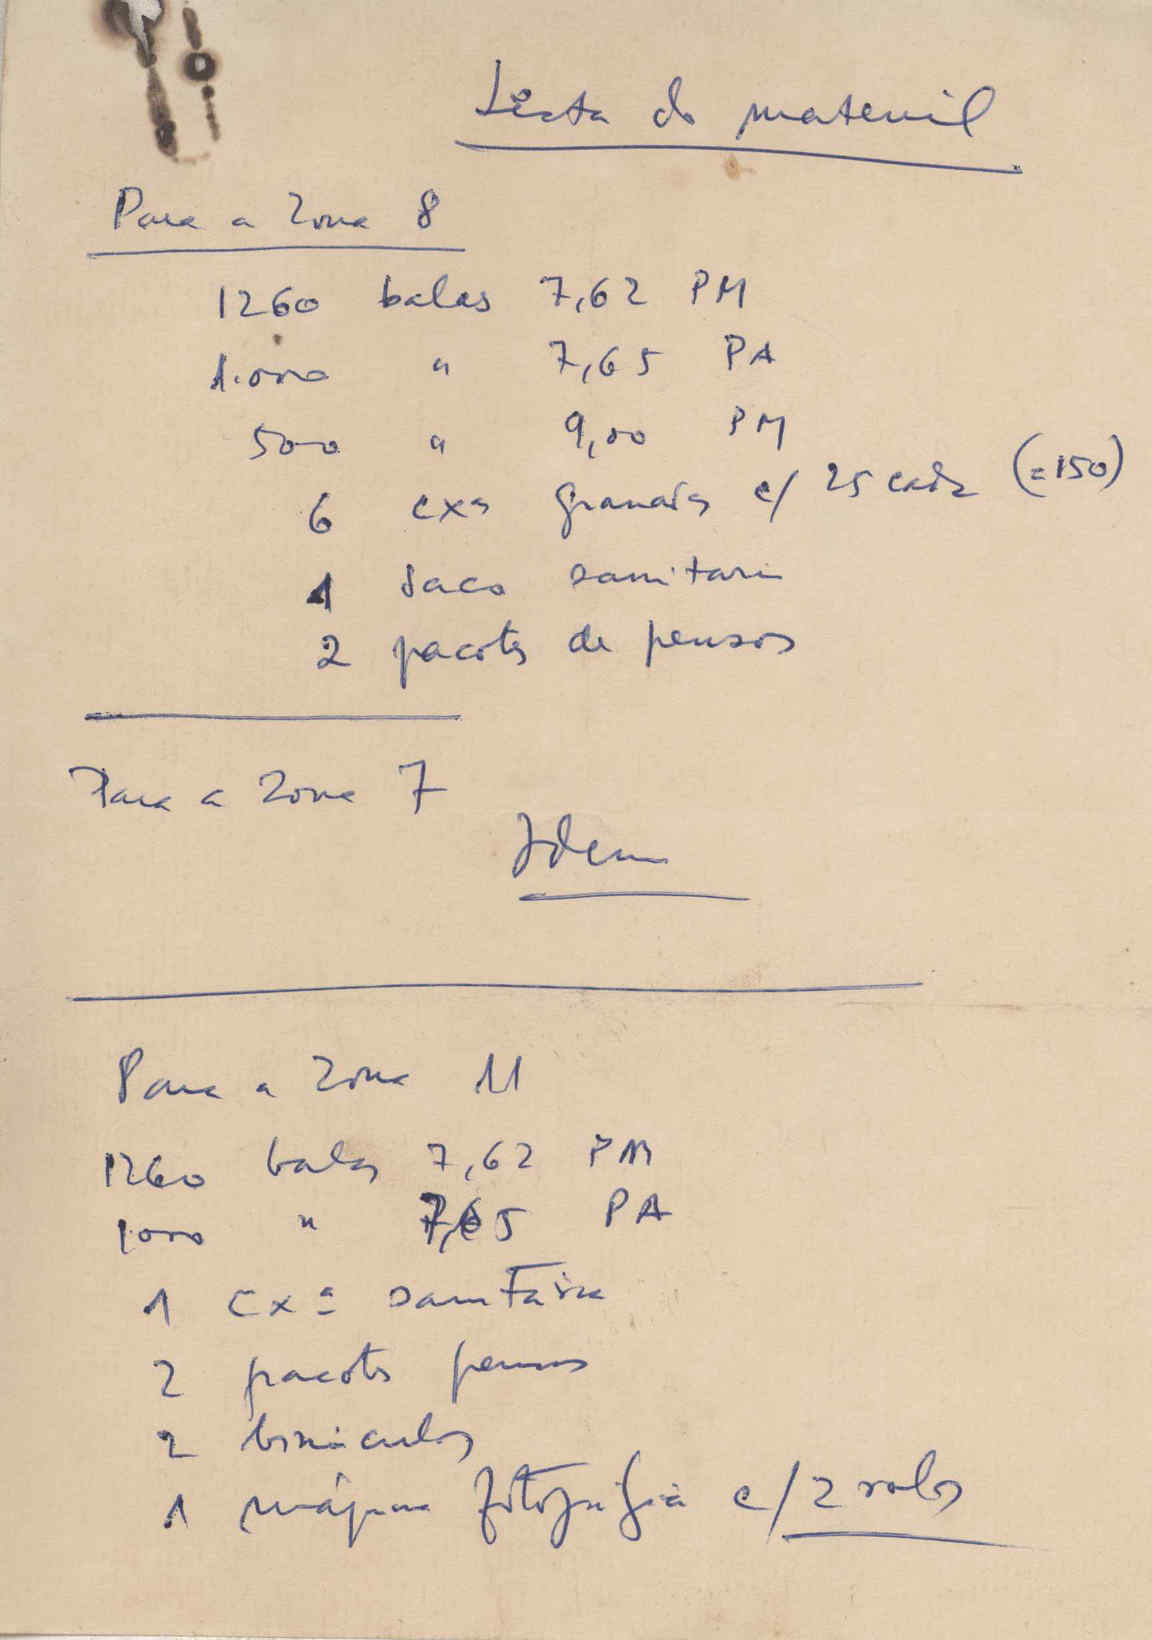 Lista do material
Para a Zona 8
1260 balas 7,62 PM
1.000 " 7,65 PA
500 " 9,00 PM
6 cxas granadas c/ 25 cada (=150)
1 saco sanitario
2 pacotes de pensos
Para a Zona 7
Idem
Para a Zona 11
1260 balas 7,62 PM
1000 " 7,65 PA
1 cxª sanitaria
2 pacotes pensos
2 binóculos
1 máquina fotográfica c/ 2 rolos